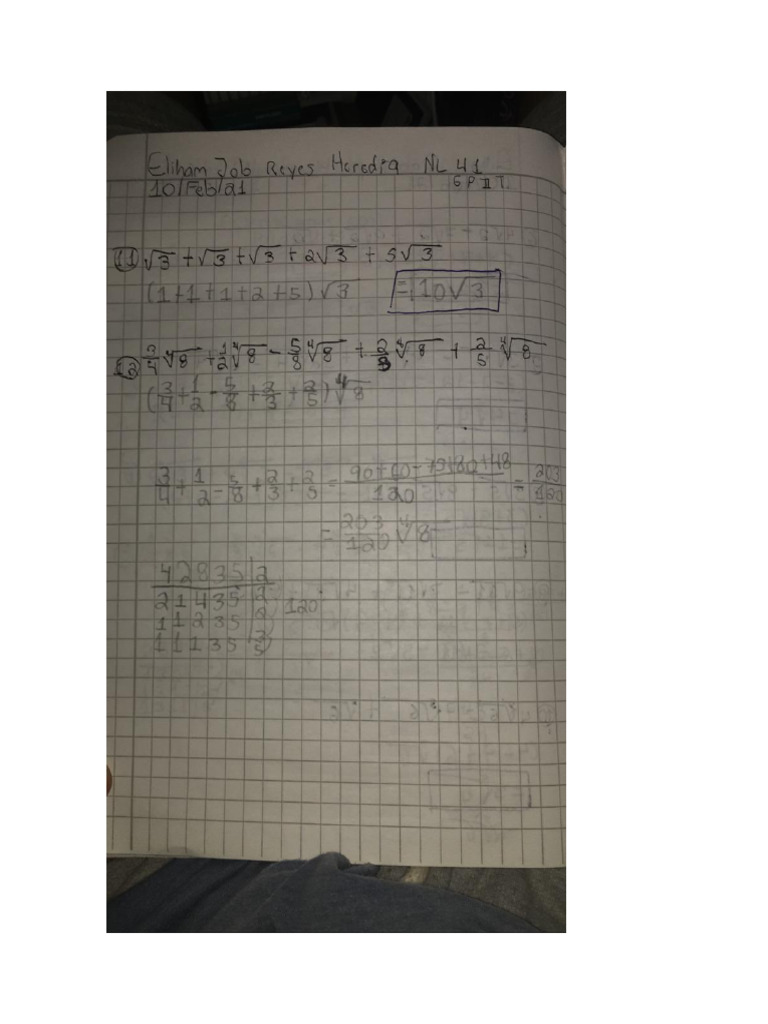 Eliham Job Reyes Heredia NL 41
10/Feb/21 5PIIT.
11 √3 + √3 + √3 + 2√3 + 5√3
(1+1+1+2+5)√3 = 10√3
12 3/4 ∜8 + 1/2 ∜8 - 5/8 ∜8 + 2/3 ∜8 + 2/5 ∜8
(3/4 + 1/2 - 5/8 + 2/3 + 2/5) ∜8
3/4 + 1/2 - 5/8 + 2/3 + 2/5 = 90+60-75+80+48/120 = 203/120
= 203/120 ∜8
4 2 8 3 5 | 2
2 1 4 3 5 | 2 120
1 1 2 3 5 | 2
1 1 1 3 5 | 3
5